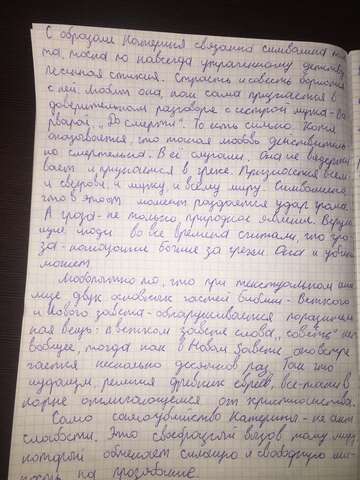 С образом Катерина связанна символика по-
та, тоска по навсегда утраченному детству,
песенная стихия. Страсть и совесть борются
в ней. Любит она, как сама признается в
доверительном разговоре с сестрой мужа - Ва-
рварой, "До смерти". То есть сильно. Потом
оказывается, что такая любовь действительно
но смертельна. В её случаи. Она не выдержи-
вает и признается в грехе. Признается всем:
и свекрови, и мужу, и всему миру. Символично,
что в этот момент раздается удар грома.
А гроза - не только природное явление. Верую-
щие люди во все времена считали, что гро-
за - наказание божие за грехи. Она и убить
может.
Любопытно то, что при текстуальном ана-
лизе, двух основных частей Библии - Ветхого
и Нового завета - обнаруживается поразитель-
ная вещь: в ветхом завете слова "совесть" нет
вообще, тогда как в Новом Завете оно встре-
чается несколько десятков раз. Так что
иудаизм, религия древних евреев, все-таки в
корне отличающееся от христианства.
Само самоубийство Катерины - не акт
слабости. Это своеобразный вызов тому миру
который обменяет сильную и свободную ли-
чность на прозябание.